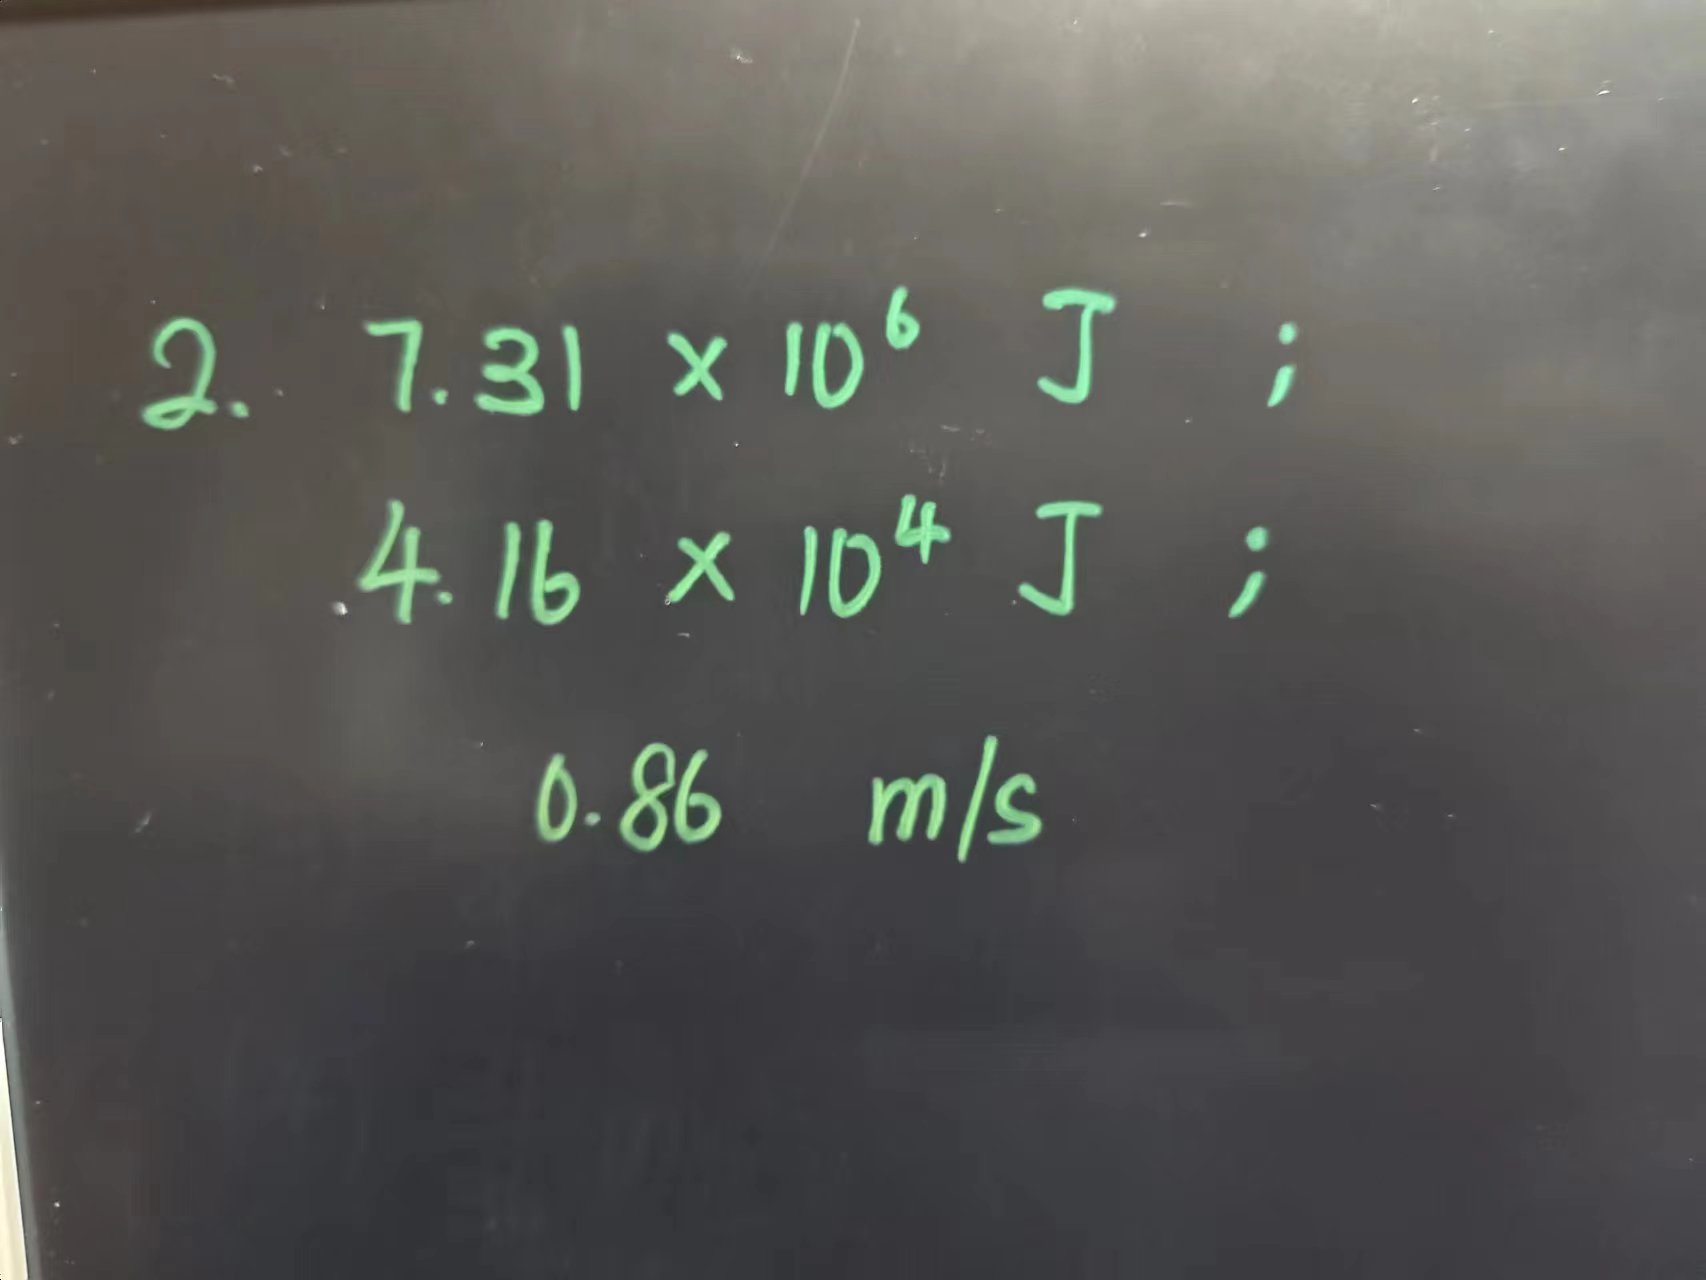 2. 7.31 × 10⁶ J ;
4.16 × 10⁴ J ;
0.86 m/s